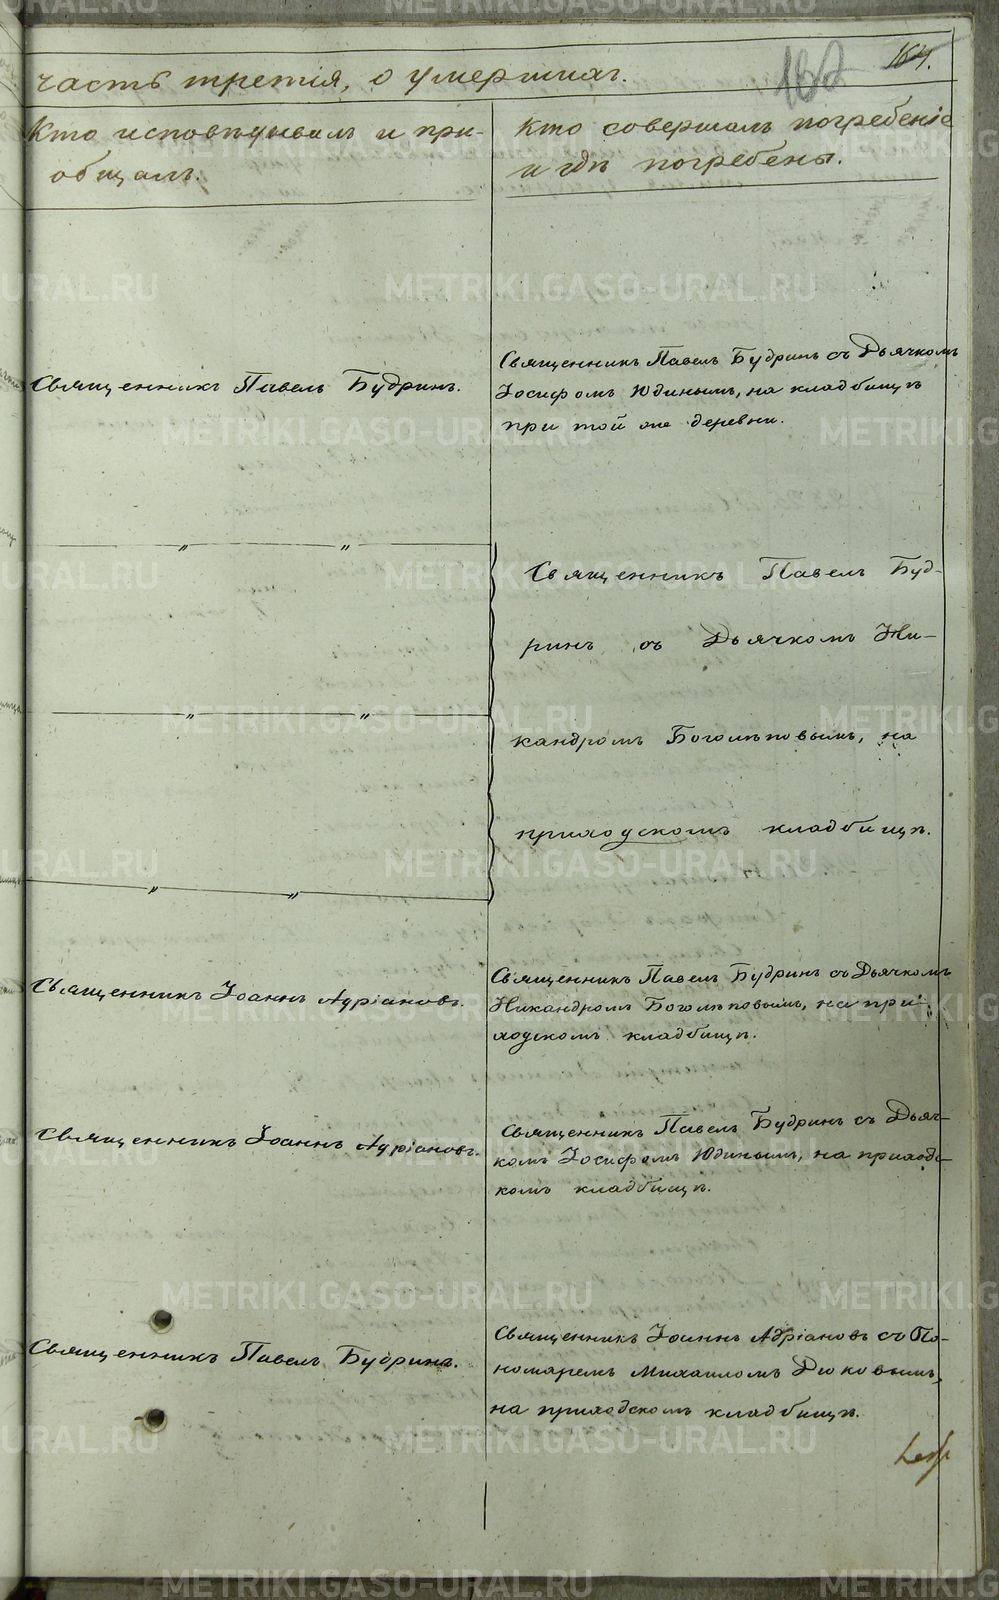 часть третія, о умершихъ.
164.
Кто исповѣдывалъ и прі-
общалъ.
Кто совершалъ погребеніе
и гдѣ погребены.
Священникъ Павелъ Будринъ.
Священникъ Павелъ Будринъ съ Дьячкомъ
Іосифомъ Юдинымъ, на кладбищѣ
при той же деревни.
" "
" "
" "
Священникъ Павелъ Буд-
ринъ съ Дьячкомъ Ни-
кандромъ Боголѣповымъ, на
приходскомъ кладбищѣ.
Священникъ Іоаннъ Адріановъ.
Священникъ Павелъ Будринъ съ Дьячкомъ
Никандромъ Боголѣповымъ, на при-
ходскомъ кладбищѣ.
Священникъ Іоаннъ Адріановъ.
Священникъ Павелъ Будринъ съ Дьяч-
комъ Іосифомъ Юдинымъ, на приходс-
комъ кладбищѣ.
Священникъ Павелъ Будринъ.
Священникъ Іоаннъ Адріановъ съ По-
номаремъ Михаиломъ Дюковымъ,
на приходскомъ кладбищѣ.
METRIKI.GASO-URAL.RU